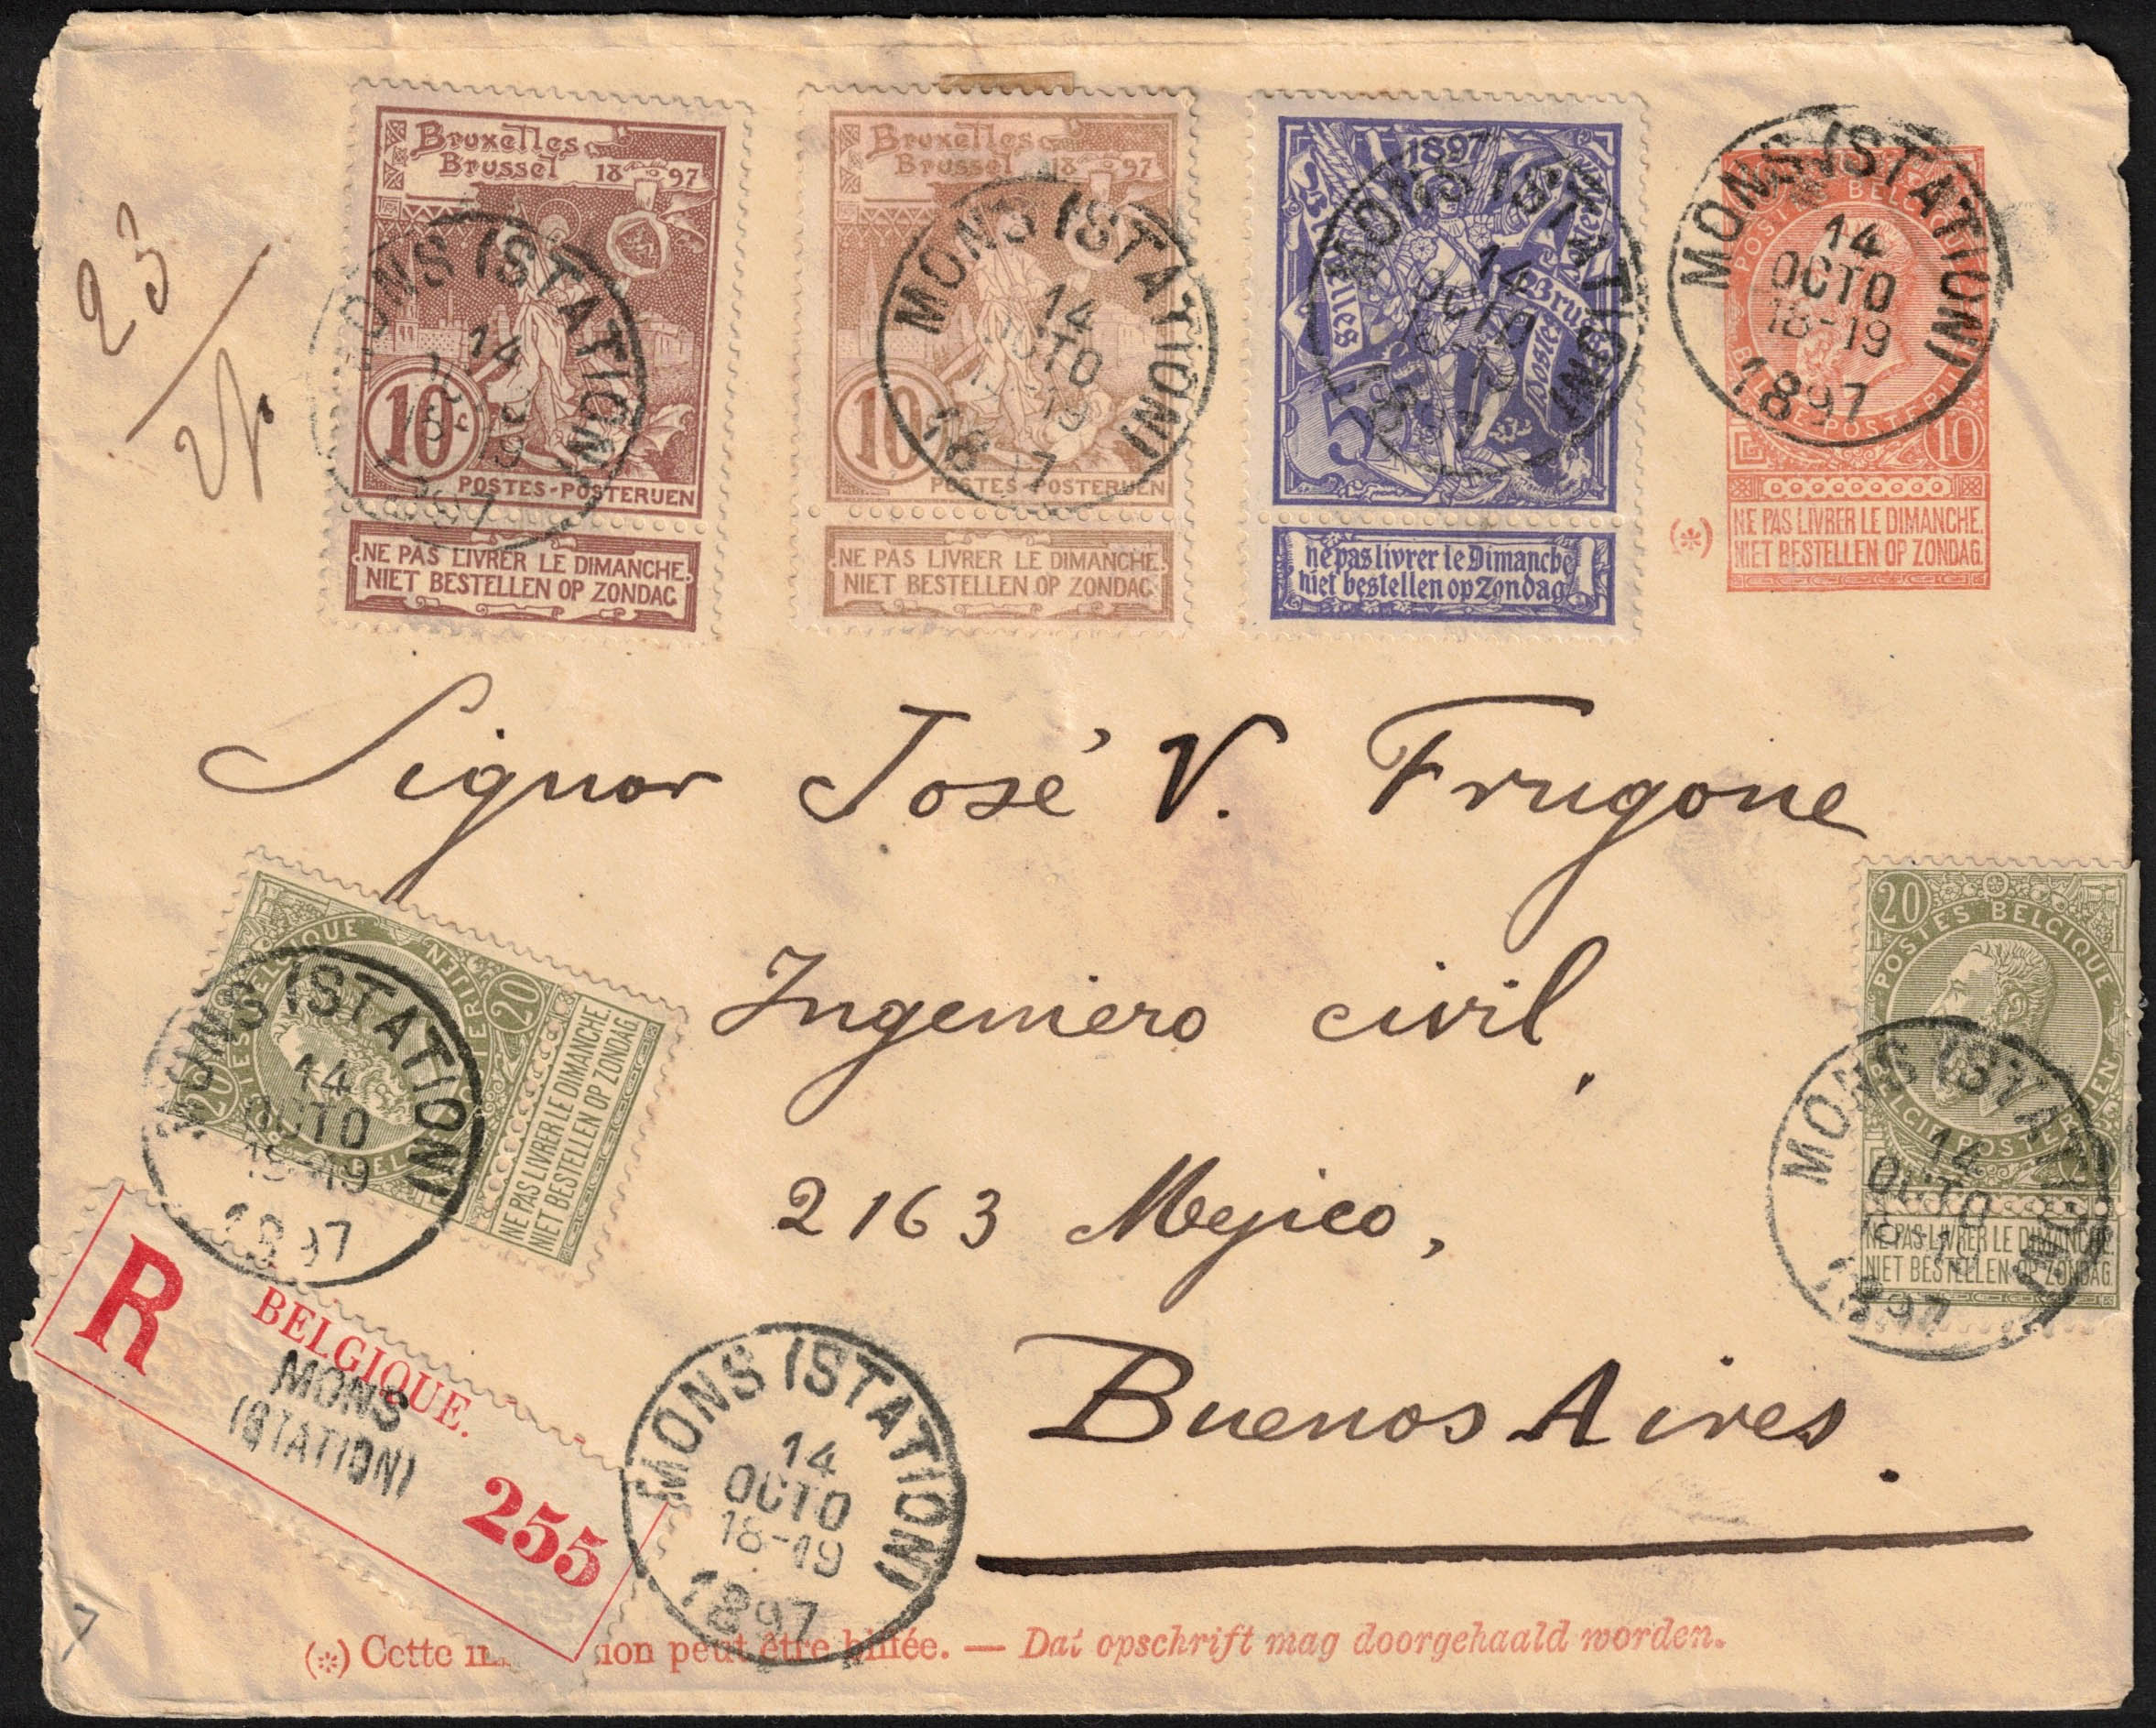 23
Bruxelles
Brussel 1897
10c
POSTES-POSTERIJEN
NE PAS LIVRER LE DIMANCHE.
NIET BESTELLEN OP ZONDAG
MONS (STATION)
14
OCTO
18-19
1897
Bruxelles
Brussel 1897
10
POSTES-POSTERIJEN
NE PAS LIVRER LE DIMANCHE.
NIET BESTELLEN OP ZONDAG
MONS (STATION)
14
OCTO
1897
1897
Bruxelles
Brussel
Postes
5
ne pas livrer le Dimanche
niet bestellen op Zondag
MONS (STATION)
14
OCTO
1897
POSTES BELGIQUE
BELGIE POSTERIJEN
10
(*) NE PAS LIVRER LE DIMANCHE.
NIET BESTELLEN OP ZONDAG.
MONS (STATION)
14
OCTO
18-19
1897
Signor José V. Frugone
Ingeniero civil,
2163 Mejico,
Buenos Aires.
20 20
BELGIQUE
NE PAS LIVRER LE DIMANCHE.
NIET BESTELLEN OP ZONDAG.
MONS (STATION)
14
OCTO
18-19
1897
20
POSTES BELGIQUE
BELGIE POSTERIJEN
NE PAS LIVRER LE DIMANCHE.
NIET BESTELLEN OP ZONDAG.
MONS (STATION)
14
OCTO
1897
R
BELGIQUE.
MONS
(STATION)
255
MONS (STATION)
14
OCTO
18-19
1897
(*) Cette peut être biffée. — Dat opschrift mag doorgehaald worden.